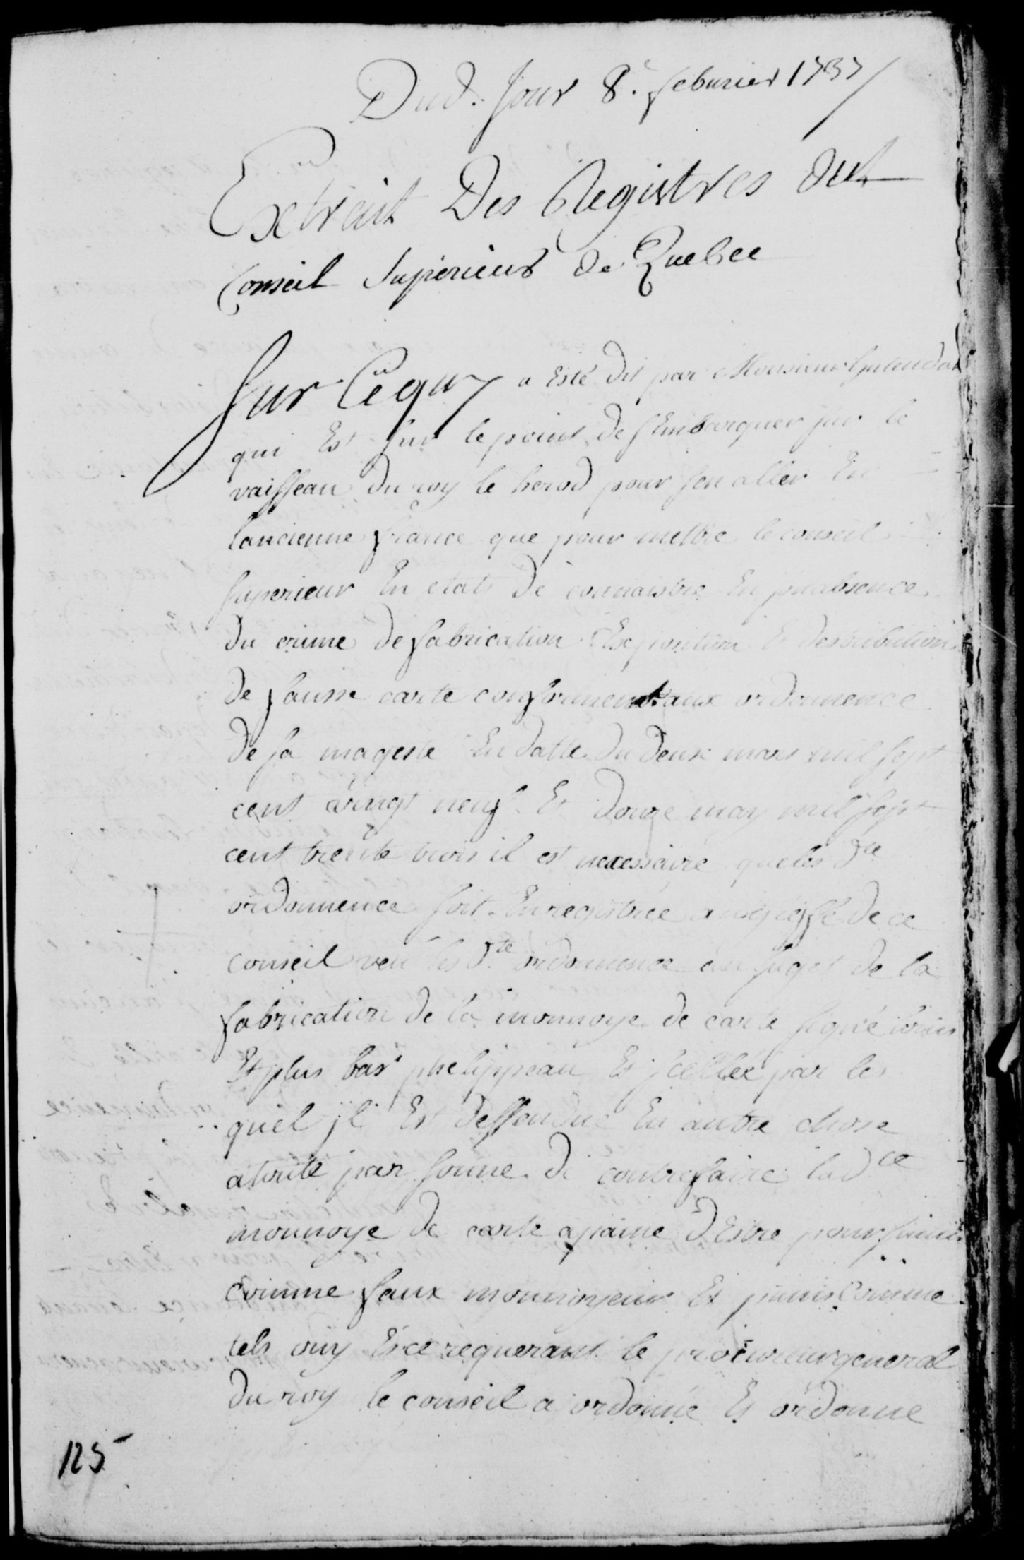 Dud. Jour 8e. feburier 1737/
Extrait Des Registres du
Conseil Superieur de Quebec
Sur Cequy a Esté dit par Monsieur Lintendant
qui Est sur le point de sEmbarquer sur le
vaisseau du roy le herod pour sen aller En
lancienne france que pour mettre le conseil
superieur En etat de connaistre En
du crime de fabrication Exposition & destribution
de fausse carte conformement aux ordonnence
de sa mageste En datte du deux mars mil sept
cent vingt neuf Et douze may mil sept
cent trente trois il est necessaire que les dte
ordonnence soit Enregistrée au greffe de ce
conseil veu les dte ordonnence au suget de la
fabrication de la monnoye de carte signé louis
Et plus bas phelippeau Et sellée par les
quel il Est deffendu En autre chose
atoute par sonne de contrefaire lad ce
monnoye de carte apaine dEstre poursuivis
comme faux monnoyeur Et punis Comme
tels ouy Et ce requerant le procureur general
du roy le conseil a ordonné Et ordonne
125